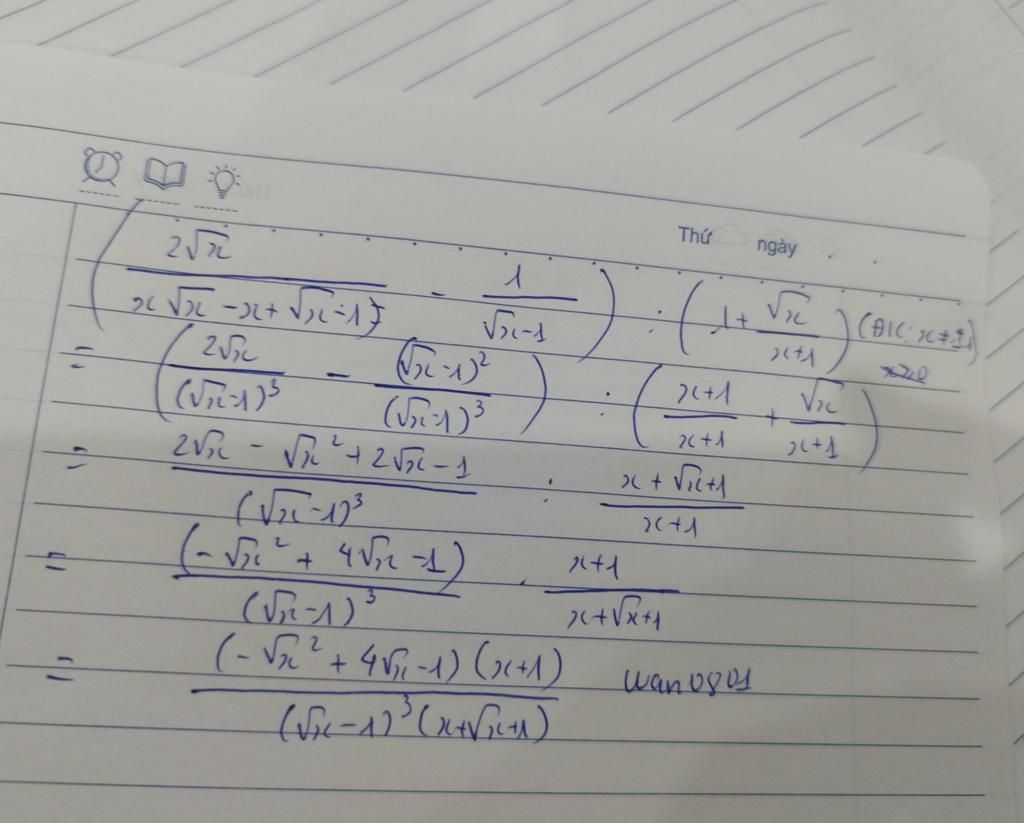 Thứ ngày
( 2√x / (x√x - x + √x - 1) - 1 / (√x - 1) ) : ( 1 + √x / (x+1) ) (ĐK: x ≠ 1)
= ( 2√x / (√x-1)³ - (√x-1)² / (√x-1)³ ) : ( (x+1) / (x+1) + √x / (x+1) )
= (2√x - √x² + 2√x - 1) / (√x-1)³ : (x + √x + 1) / (x+1)
= (-√x² + 4√x - 1) / (√x-1)³ . (x+1) / (x+√x+1)
= (-√x² + 4√x - 1)(x+1) / (√x-1)³(x+√x+1) wan0801